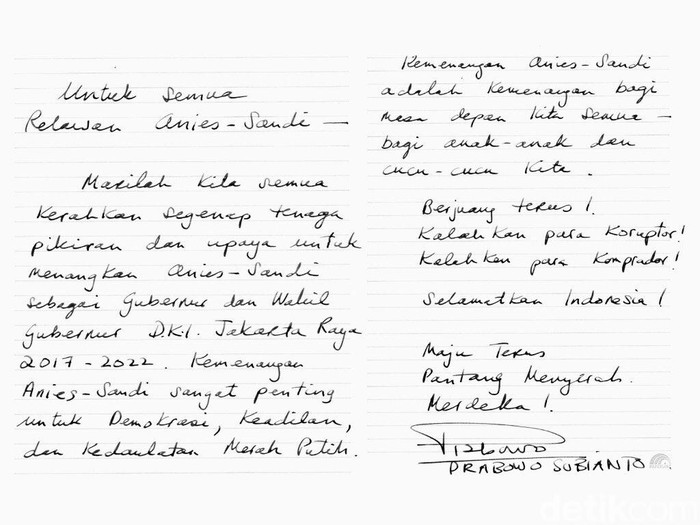 Untuk semua
Relawan Anies-Sandi —
Marilah kita semua
kerahkan segenap tenaga
pikiran dan upaya untuk
menangkan Anies-Sandi
sebagai Gubernur dan Wakil
Gubernur D.K.I. Jakarta Raya
2017-2022. Kemenangan
Anies-Sandi sangat penting
untuk Demokrasi, Keadilan,
dan Kedaulatan Merah Putih.
Kemenangan Anies-Sandi
adalah kemenangan bagi
masa depan kita semua —
bagi anak-anak dan
cucu-cucu kita.
Berjuang terus!
Kalahkan para Koruptor!
Kalahkan para Komprador!
Selamatkan Indonesia!
Maju Terus
Pantang Menyerah.
Merdeka!
Prabowo
PRABOWO SUBIANTO
detikcom